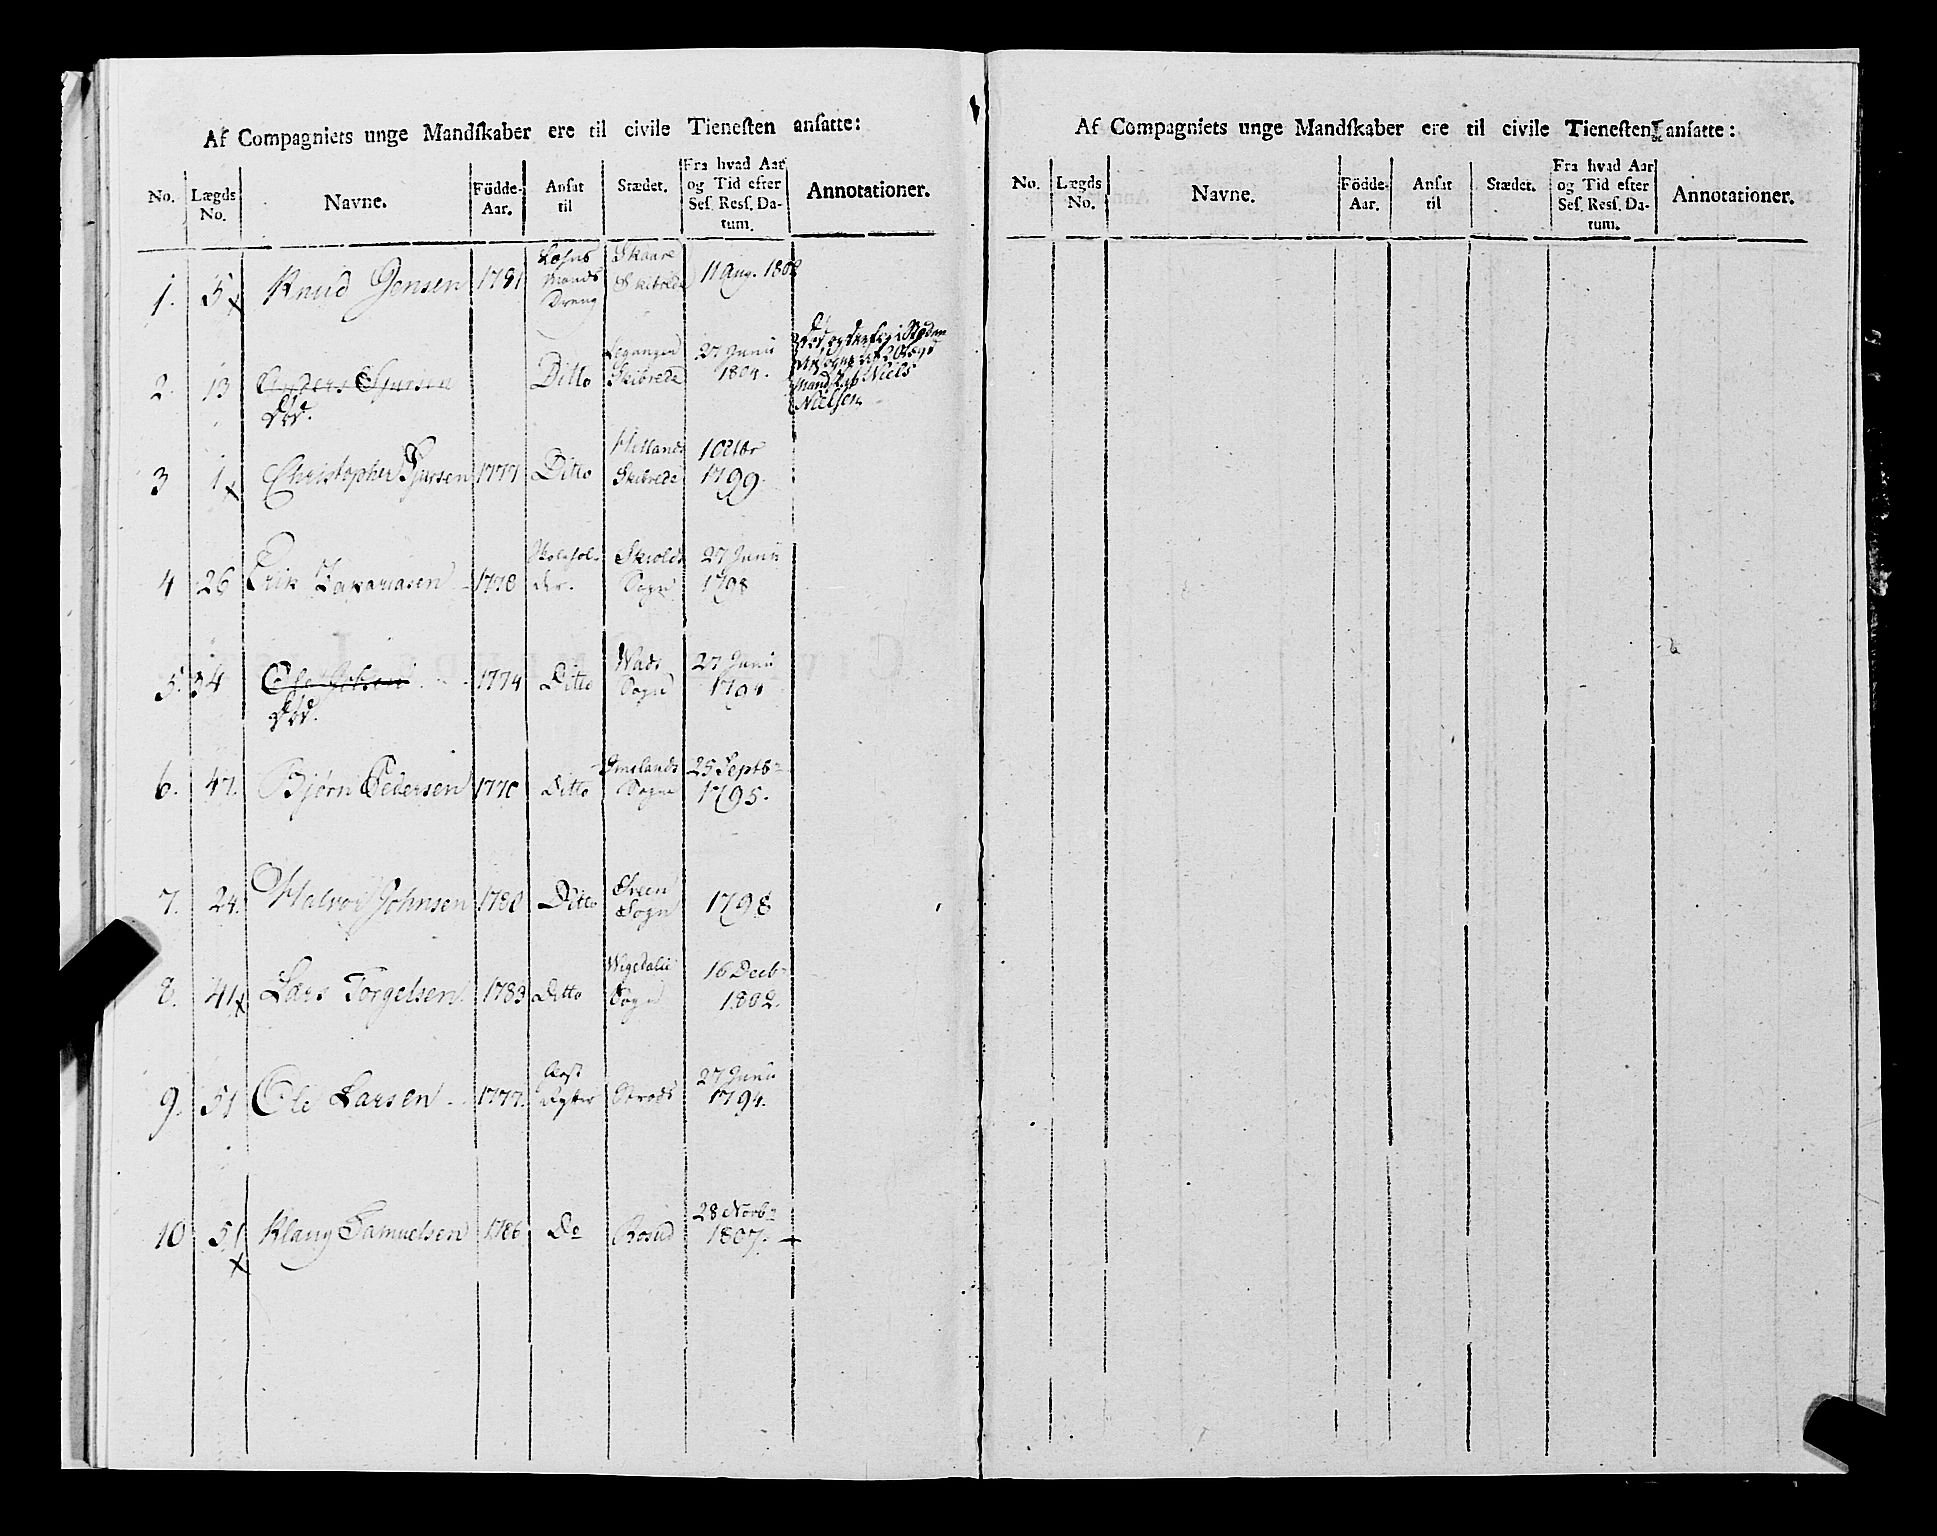 Af Compagniets unge Mandſkaber ere til civile Tieneſten anſatte:
No. Lægds No. Navne. Födde-Aar. Anſat til Stædet. Fra hvad Aar og Tid efter Seſ. Reſſ. Datum. Annotationer.
1. 5 Knud Jensen 1781 Mands Dreng Skaare Skibrede 11 Aug. 1802
2. 13 Anders Ditto Skibrede 27 Junii 1804.
død.
Niels
Nielsen
3 1 Christopher 1777 Ditto Skibrede 1 Octbr 1799.
4 26 Erik Zakariasen 1778 Skolehol-
der. Skiolds Sogn 27 Junii 1798
5. 34 Ole 1774 Ditto Wads Sogn 27 Junii
død.
6. 47. Bjørn Pedersen 1770 Ditto Imslands Sogn 25 Septb 1795.
7. 24. Halvor Johnsen 1780 Ditto Øreen Sogn 1798
8. 41 Lars Torgelsen 1783 Ditto Sogn 16 Decb 1802.
9. 51 Ole Larsen 1777. 27 Junii 1794.
10 51 Samuelsen 1786 Do 28 Novbr 1807.
Af Compagniets unge Mandſkaber ere til civile Tieneſten anſatte:
No. Lægds No. Navne. Födde-Aar. Anſat til Stædet. Fra hvad Aar og Tid efter Seſ. Reſſ. Datum. Annotationer.